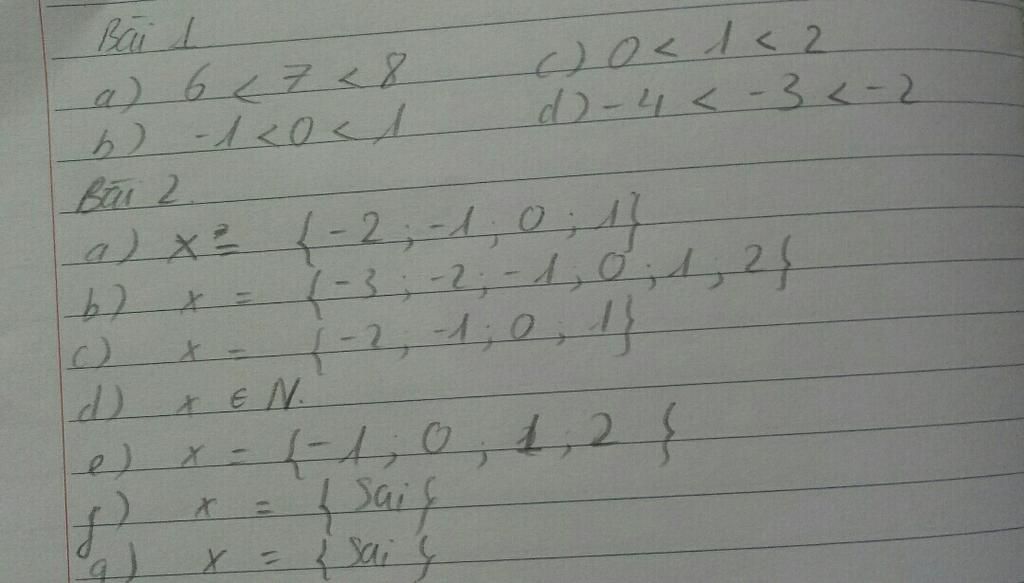 Bài 1
a) 6 < 7 < 8 c) 0 < 1 < 2
b) -1 < 0 < 1 d) -4 < -3 < -2
Bài 2
a) x = {-2; -1; 0; 1}
b) x = {-3; -2; -1; 0; 1; 2}
c) x = {-2; -1; 0; 1}
d) x ∈ N.
e) x = {-1; 0; 1; 2}
f) x = {Sai}
g) x = {Sai}